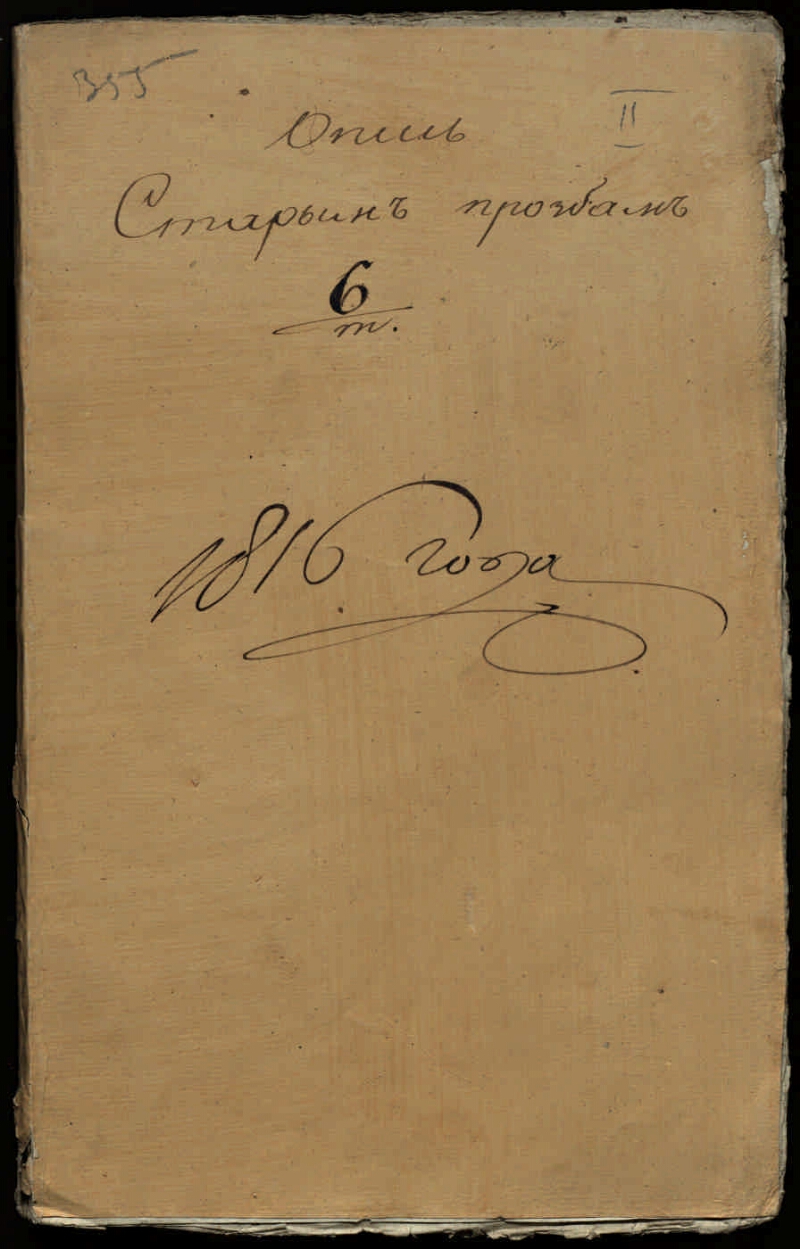 355
II
Опись
Старымъ прозбамъ
6
т.
1816 года